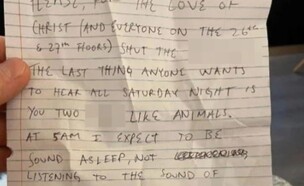 PLEASE, FOR THE LOVE OF
CHRIST (AND EVERYONE ON THE 26TH
& 27TH FLOORS) SHUT THE
THE LAST THING ANYONE WANTS
TO HEAR ALL SATURDAY NIGHT IS
YOU TWO LIKE ANIMALS.
AT 5AM I EXPECT TO BE
SOUND ASLEEP, NOT
LISTENING TO THE SOUND OF